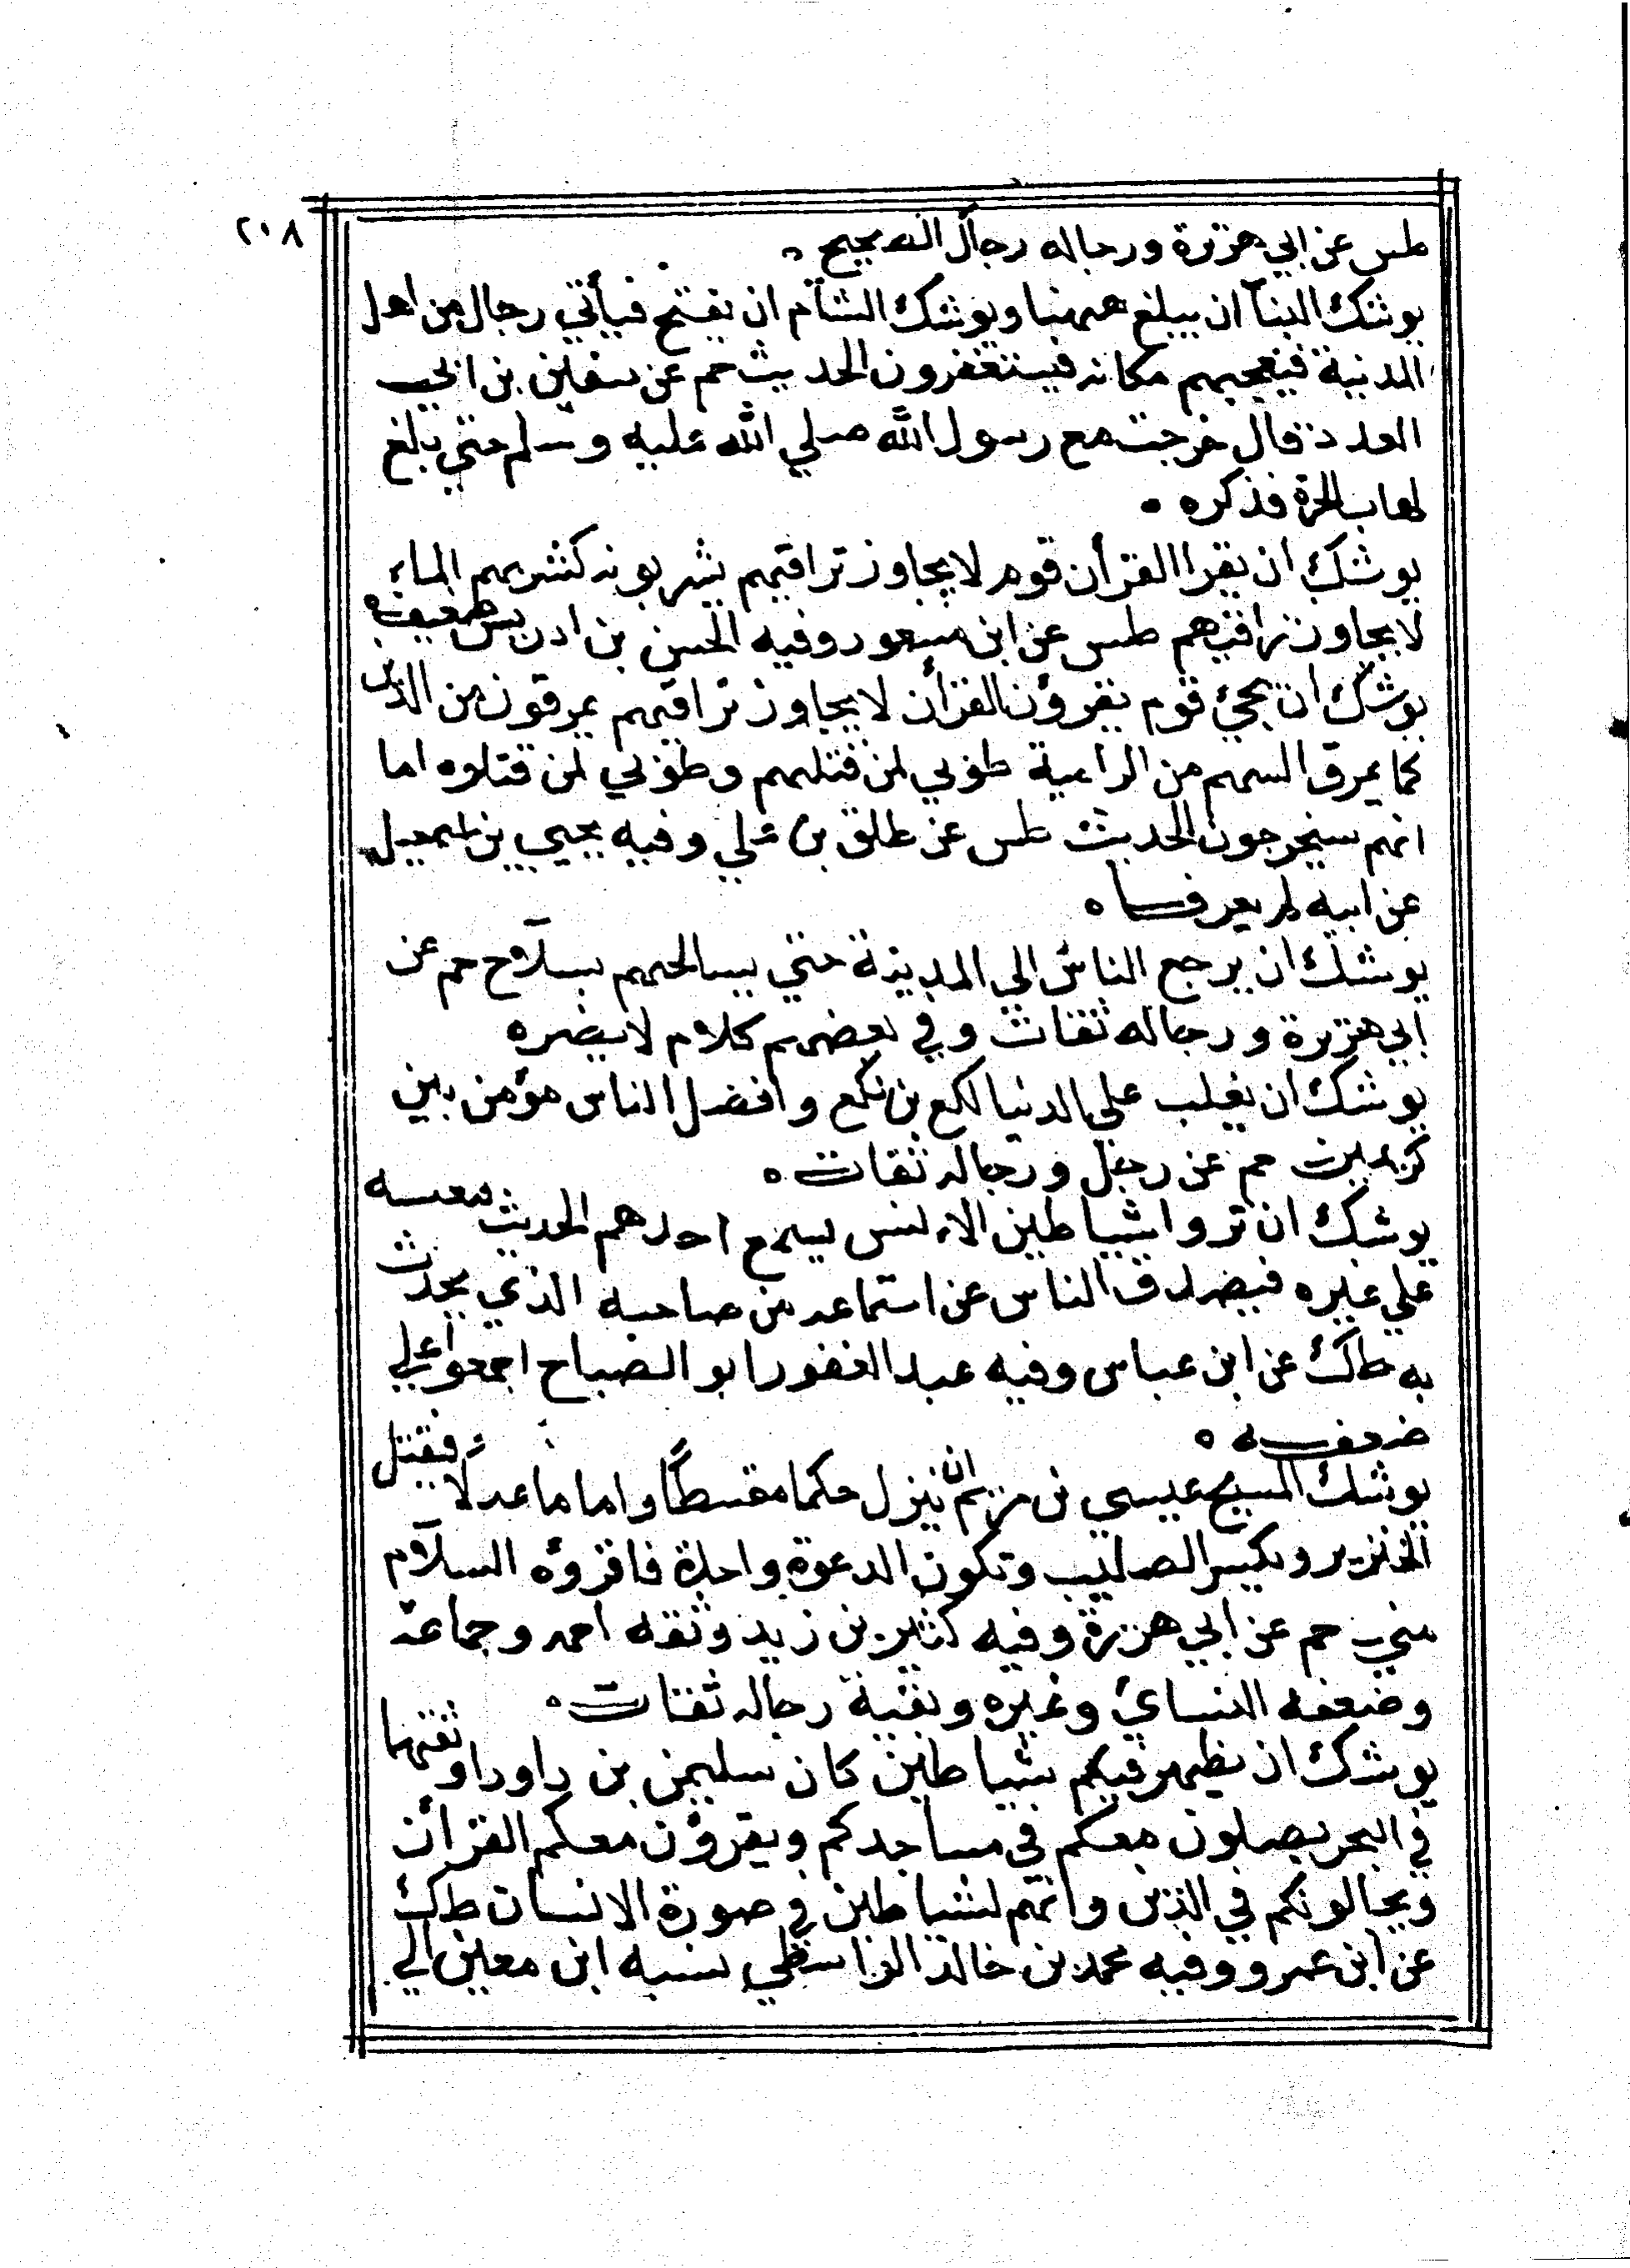 ٢٠٨
طس عن ابي هريرة ورجاله رجال الصحيح
يوشك البنآ ان يبلغ ههنا ويوشك الشآم ان يفتح فيأتي رجال من اهل
المدينة فيعجبهم مكانه فيستغفرون الحديث حم عن سفين بن ابي
قال خرجت مع رسول الله صلي الله عليه وسلم حتي بلغ
الحرة فذكره
يوشك ان يقرا القرآن قوم لا يجاوز تراقيهم يشربونه كشربهم الماء
لا يجاوز تراقيهم طس عن ابن مسعود وفيه الحسن بن ادريس ضعيف
يوشك ان يجئ قوم يقرؤن القرآن لا يجاوز تراقيهم يمرقون من الدين
كما يمرق السهم من الرامية طوبي لمن قتلهم وطوبي لمن قتلوه اما
انهم سيخرجون الحديث طس عن طلق بن علي وفيه يحيي بن اسمعيل
عن ابيه لم يعرفا
يوشك ان يرجع الناس الي المدينة حتي يسالحهم بسلآح حم عن
ابي هريرة ورجاله ثقات وفي بعضهم كلام لا يضره
يوشك ان يغلب علي الدنيا لكع بن لكع وافضل الناس مؤمن بين
كريمين حم عن رجل ورجاله ثقات
يوشك ان تروا شياطين الانس يسمع احدهم الحديث فيقيسه
علي غيره فيصد ف الناس عن استماعه من صاحبه الذي يحدث
به طك عن ابن عباس وفيه عبد الغفور ابو الصباح اجمعوا علي
ضعفه
يوشك المسيح عيسي بن مريم ان ينزل حكما مقسطًا واماما عدلا فيقتل
الخنزير ويكسر الصليب وتكون الدعوة واحدة فاقرؤه السلآم
مني حم عن ابي هريرة وفيه كثير بن زيد وثقه احمد وجماعة
وضعفه النسائ وغيره وبقية رجاله ثقات
يوشك ان يظهر فيكم شياطين كان سليمن بن داود اوثقها
في البحر يصلون معكم في مساجدكم ويقرؤن معكم القرآن
ويجادلونكم في الدين وانهم لشياطين في صورة الانسان طك
عن ابن عمرو وفيه محمد بن خالد الواسطي نسبه ابن معين الي